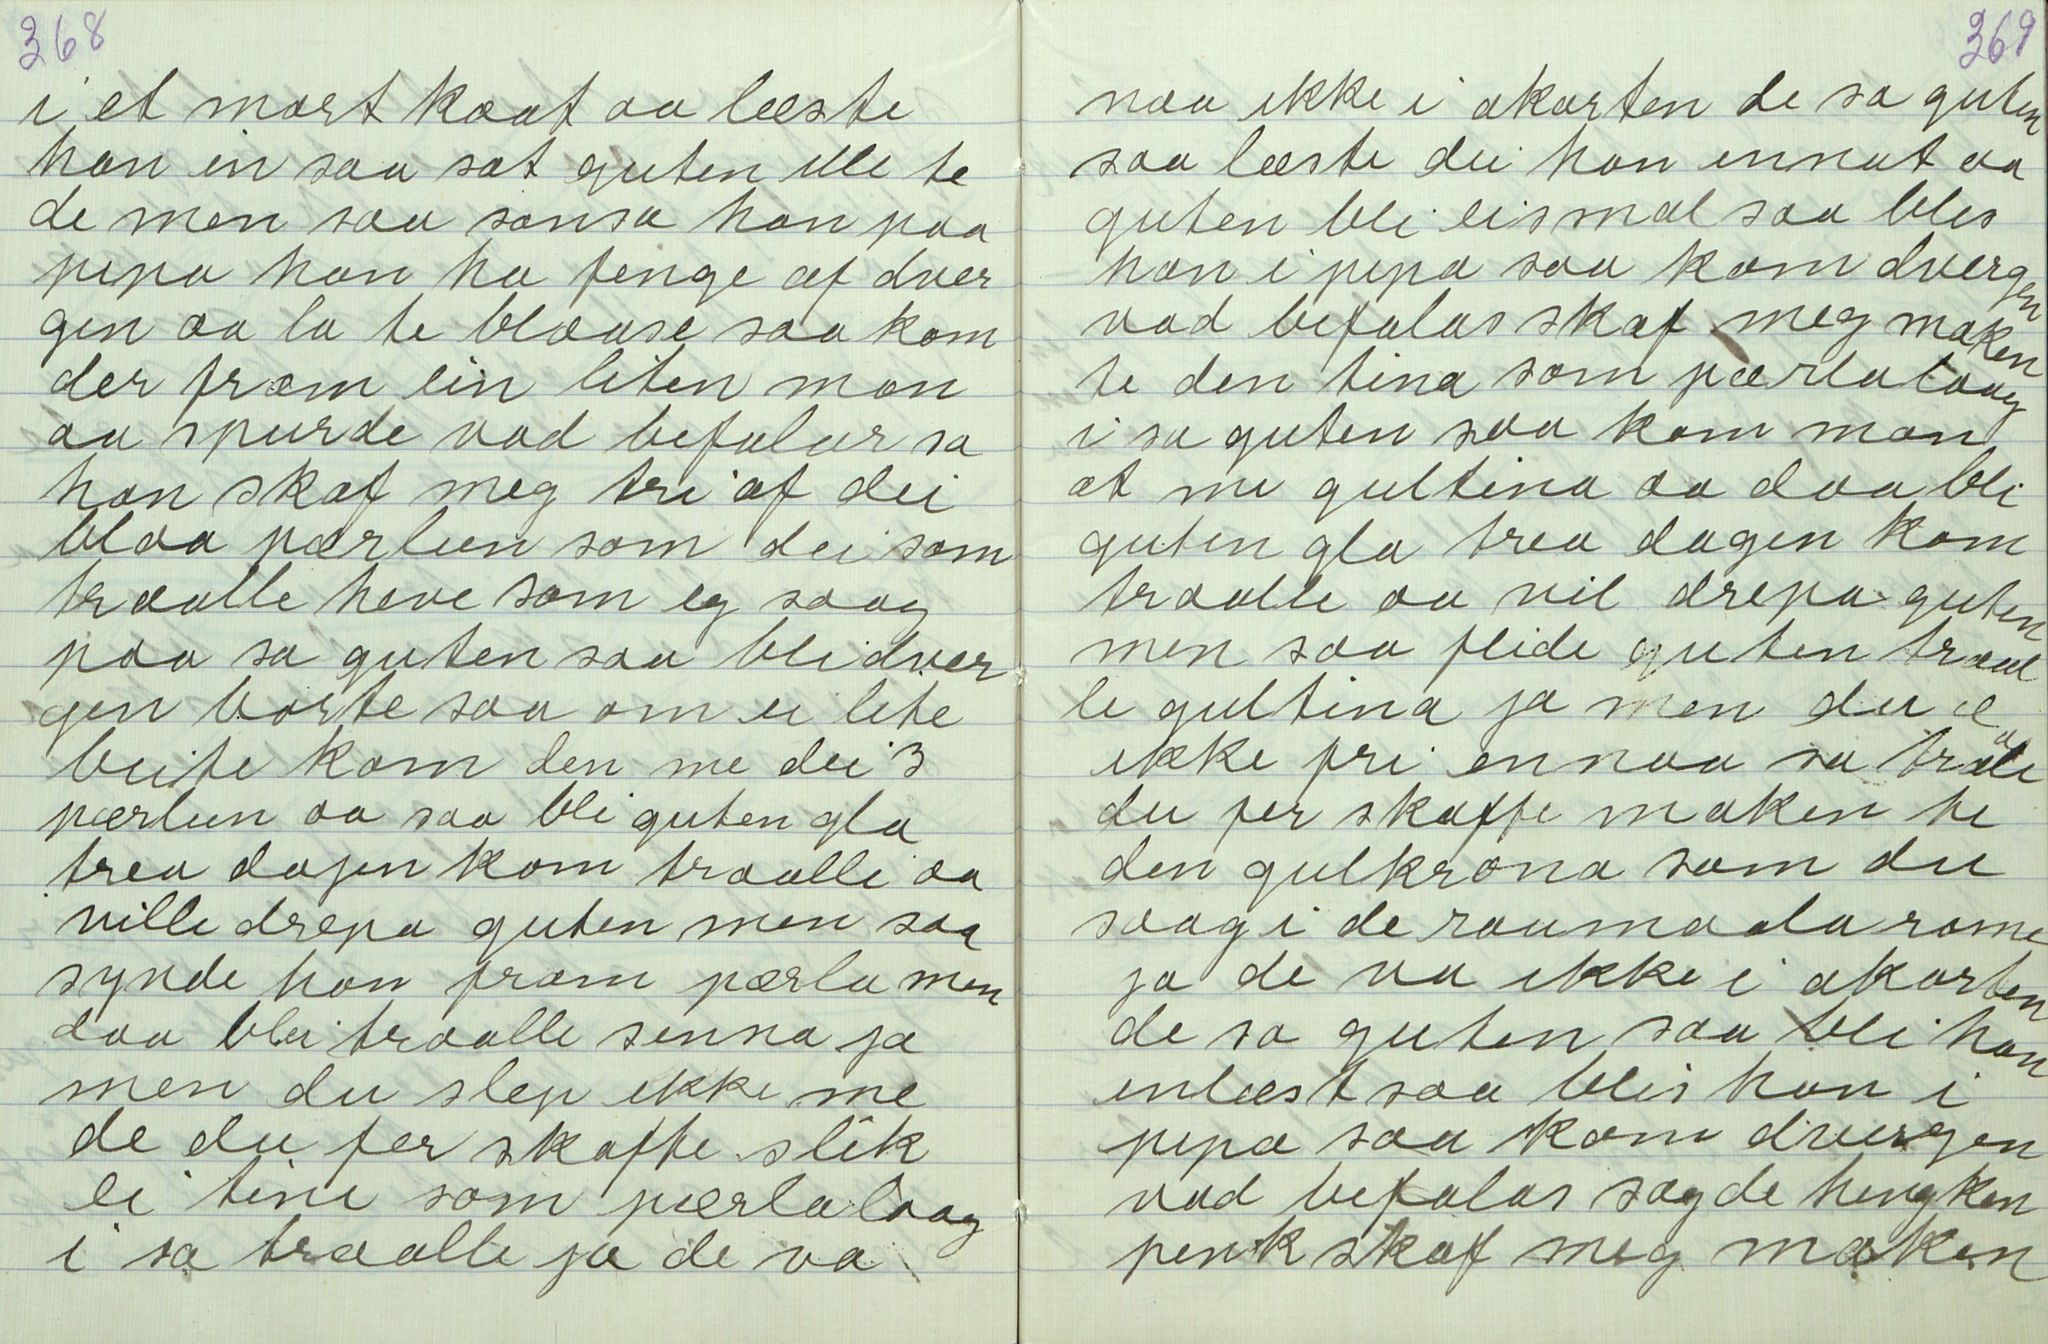 368
i et mort kaat aa læste
han in saa sat guten ille te
de men saa sansa han paa
pipa han ha fenge af dver
gen aa la te blaase saa kom
der fram ein liten man
aa spurde vad befalar sa
han skaf meg tri af dei
blaa pærleen som dei som
traalle heve som eg saag
paa sa guten saa blei dver
gen borte saa om ei lite
beite kom den me dei 3
pærleen aa saa blei guten gla
trea dagen kom traalle aa
ville drepa guten men saa
synde han fram pærla men
daa blei traalle senna ja
men du slep ikke me
de du fer skaffe slik
ei tine som pærla laag
i sa traalle ja de va
369
naa ikke i akorten de sa guten
saa læste dei han ennat aa
guten blei eismal saa bles
han i pipa saa kom dvergen
vad befalas skaf meg maken
te den tina som pærla laag
i sa guten saa kom man
at me gultina aa daa blei
guten gla trea dagen kom
traalle aa vil drepa guten
men saa fleide guten traal
le gultina ja men du æ
ikke fri ennaa sa traale
du fer skaffe maken te
den gulkrona som du
saag i de raumaala rome
ja de va ikke i akorten
de sa guten saa blei han
enlæst saa bleis han i
pipa saa kom dvergen
vad befalas sagde hengken
penk skaf meg maken